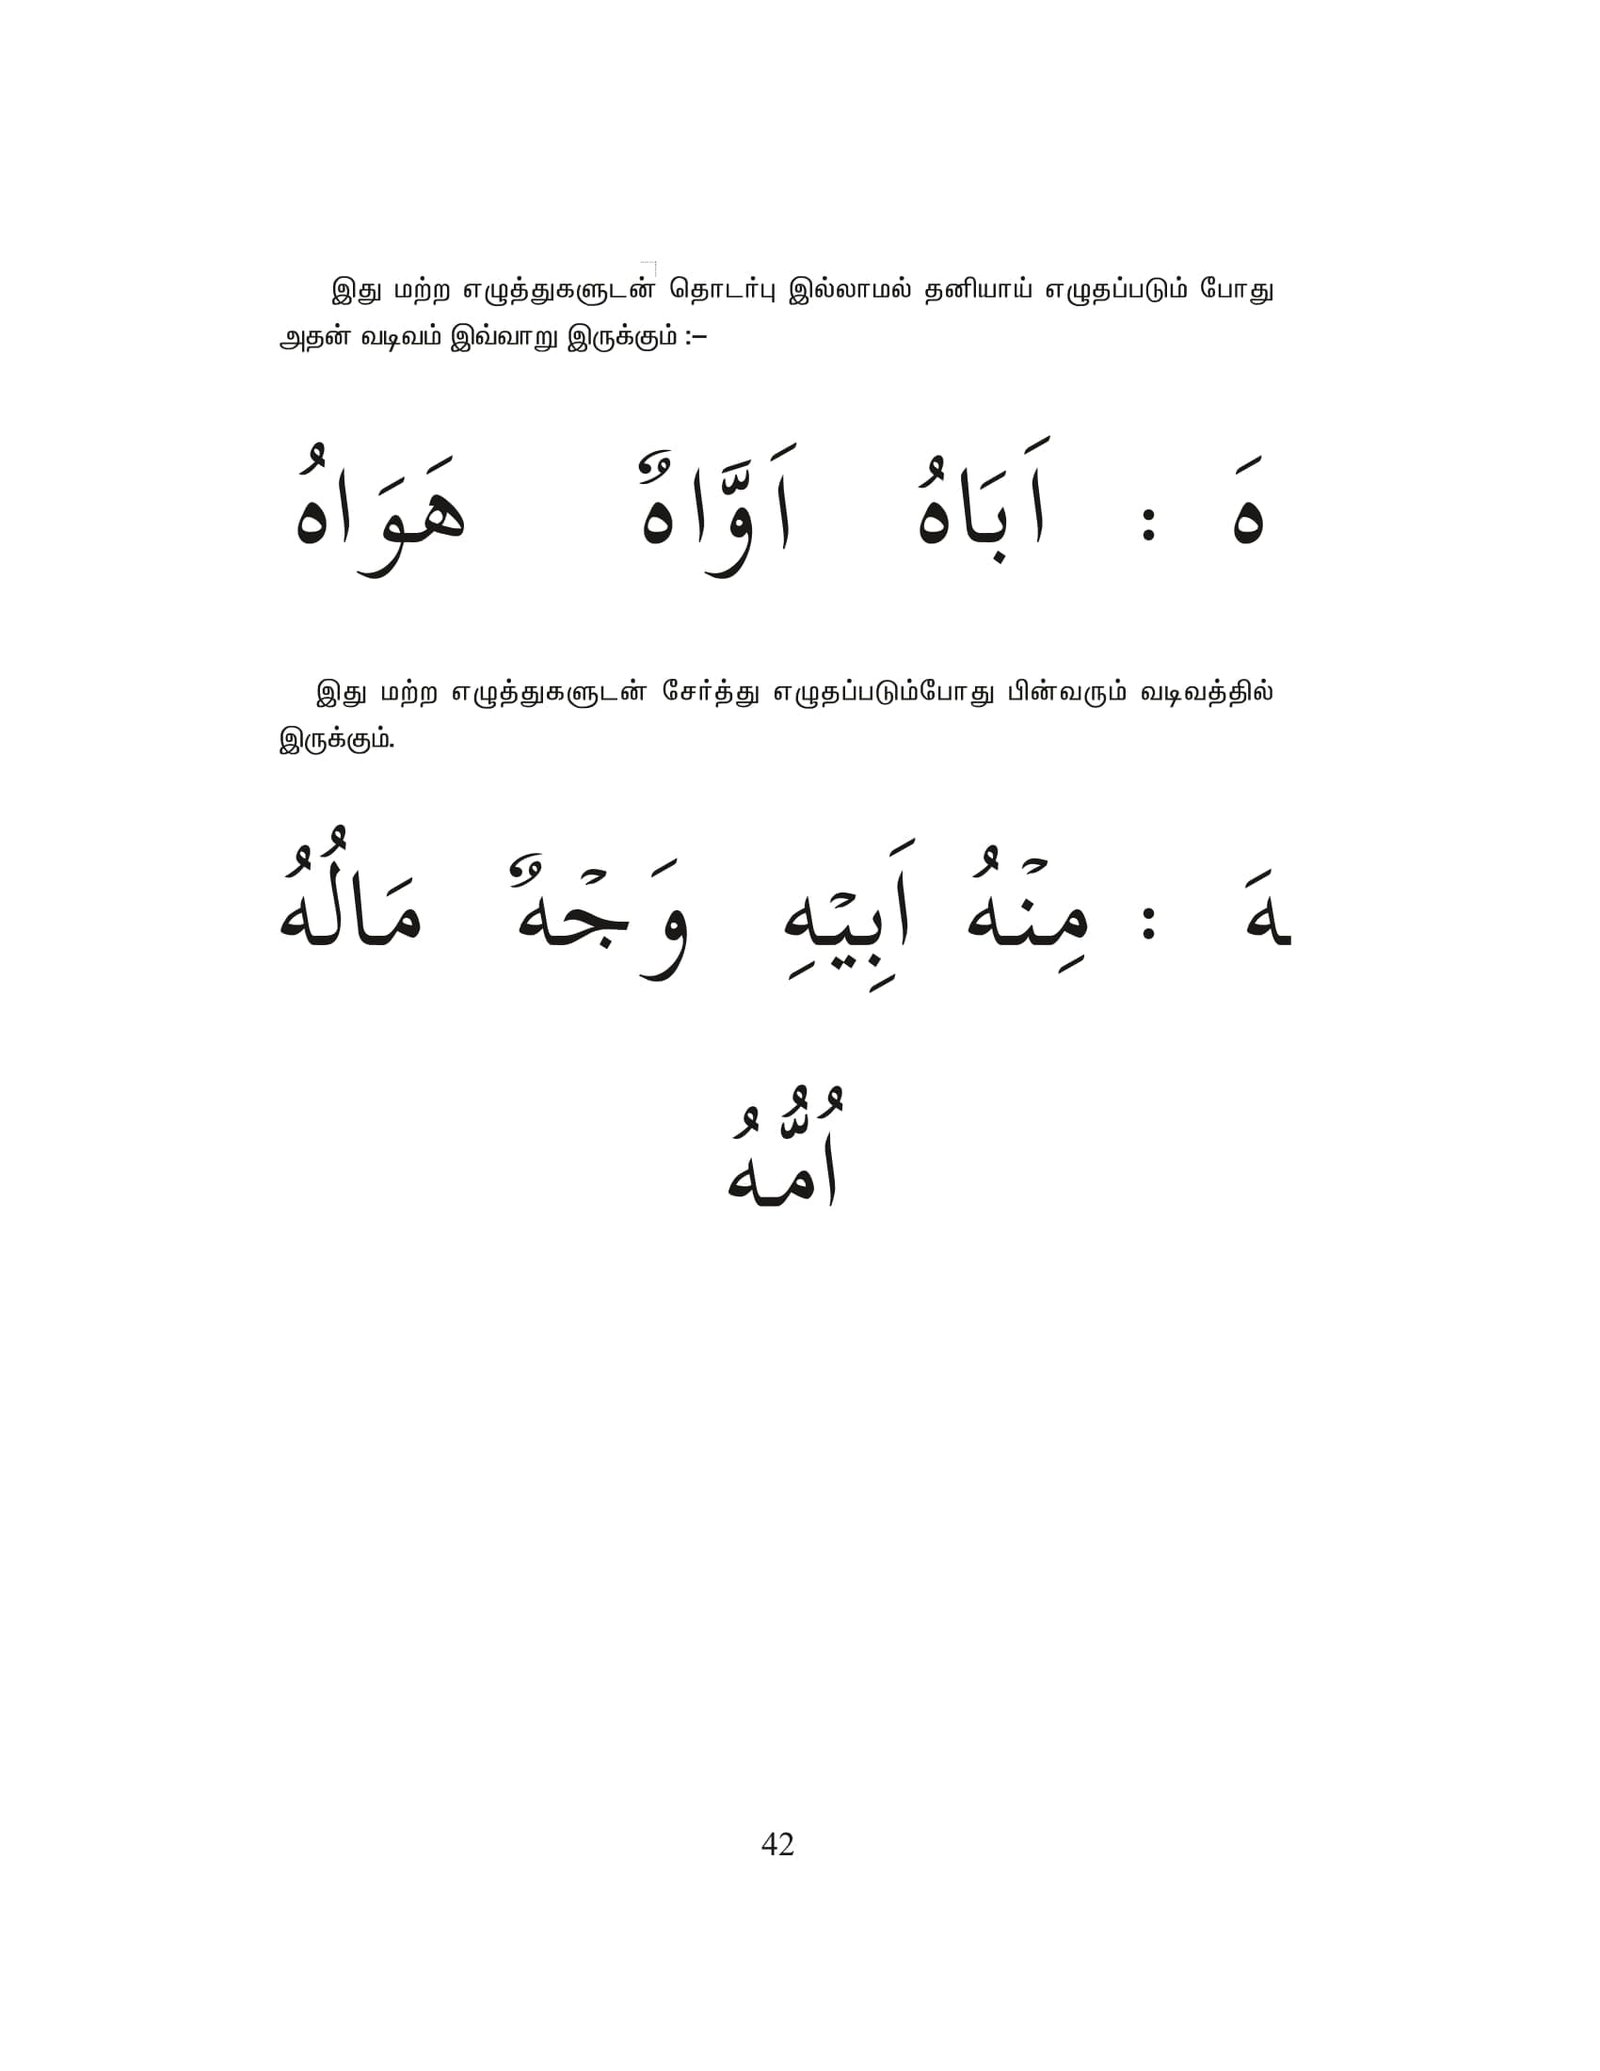 இது மற்ற எழுத்துகளுடன் தொடர்பு இல்லாமல் தனியாய் எழுதப்படும் போது
அதன் வடிவம் இவ்வாறு இருக்கும் :–
هَ : اَبَاهُ اَوَّاهٌ هَوَاهُ
இது மற்ற எழுத்துகளுடன் சேர்த்து எழுதப்படும்போது பின்வரும் வடிவத்தில்
இருக்கும்.
ـهَ : مِنْهُ اَبِيْهِ وَجْهٌ مَالُهُ
اُمُّهُ
42